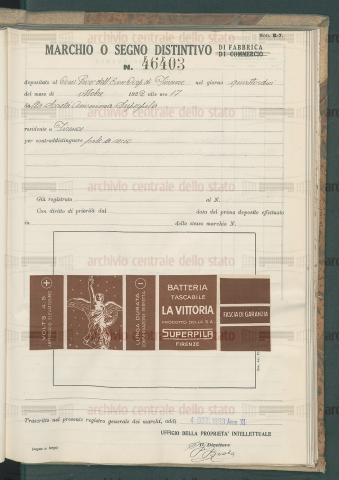 Mod. E-7.
MARCHIO O SEGNO DISTINTIVO DI FABBRICA
DI COMMERCIO
N. 46403
depositato al Cons. Prov. dell'Econ. Corp. di Firenze nel giorno
del mese di Ottobre 1932 alle ore 17
dalla Società Anonima Superpila
residente a Firenze
per contraddistinguere pile a secco
archivio centrale dello stato
Già registrato al N.
Con diritto di priorità dal data del primo deposito effettuato
in dello stesso marchio N.
VOLTS 4.5
LUNGA DURATA
BATTERIA
TASCABILE
LA VITTORIA
PRODOTTO DELLA S.A.
SUPERPILA
FIRENZE
FASCIA DI GARANZIA
Trascritto nel presente registro generale dei marchi, addì 1933 Anno XI
UFFICIO DELLA PROPRIETA' INTELLETTUALE
Il Direttore